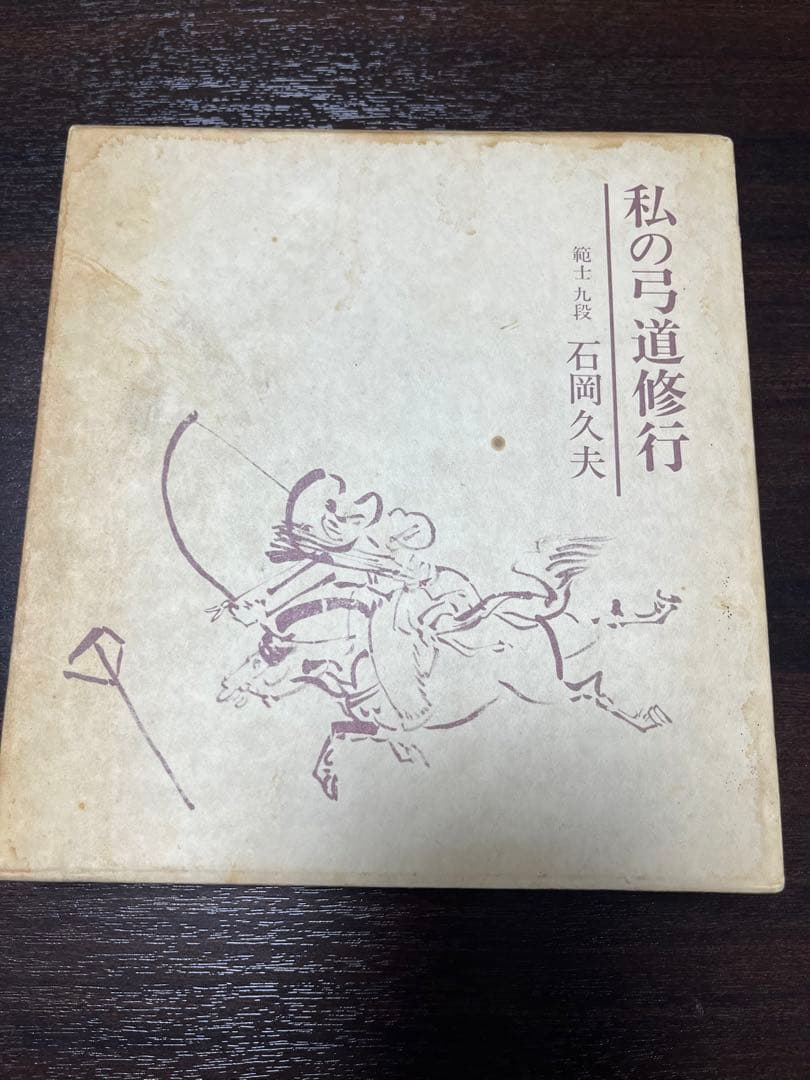 私の弓道修行
範士 九段 石岡久夫